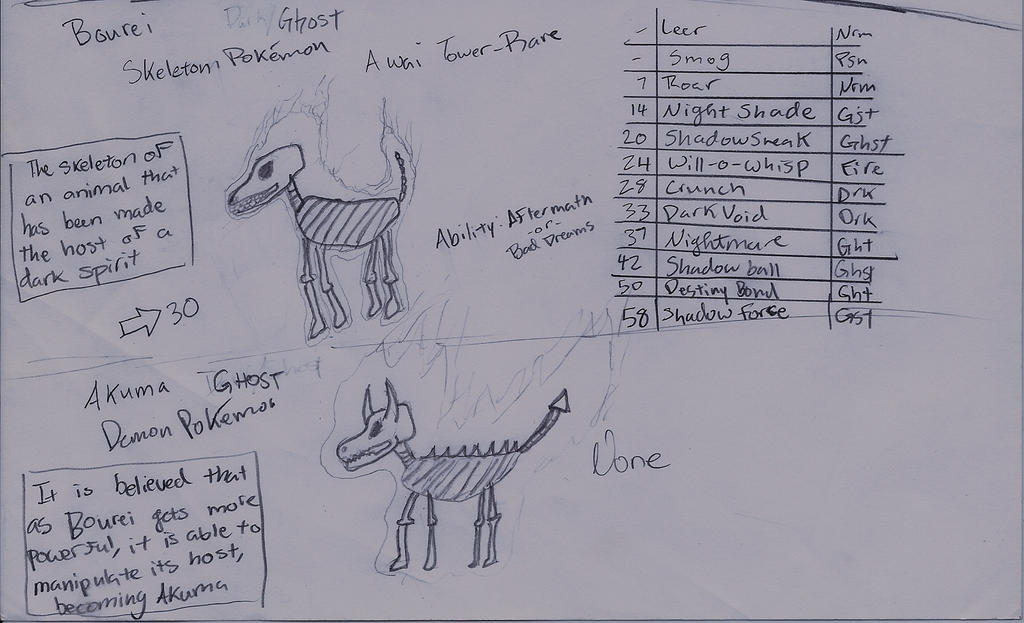 Bourei
Dark/Ghost
Skeleton Pokémon
Awai Tower-Rare
The skeleton of
an animal that
has been made
the host of a
dark spirit
Ability: Aftermath
-or-
Bad Dreams
→ 30
- Leer Nrm
- Smog Psn
7 Roar Nrm
14 Night Shade Gst
20 Shadow Sneak Ghst
24 Will-o-whisp Fire
28 Crunch Drk
33 Dark Void Drk
37 Nightmare Ght
42 Shadow ball Ghst
50 Destiny Bond Ght
58 Shadow Force Gst
Akuma GHOST
Demon Pokémon
None
It is believed that
as Bourei gets more
powerful, it is able to
manipulate its host,
becoming Akuma